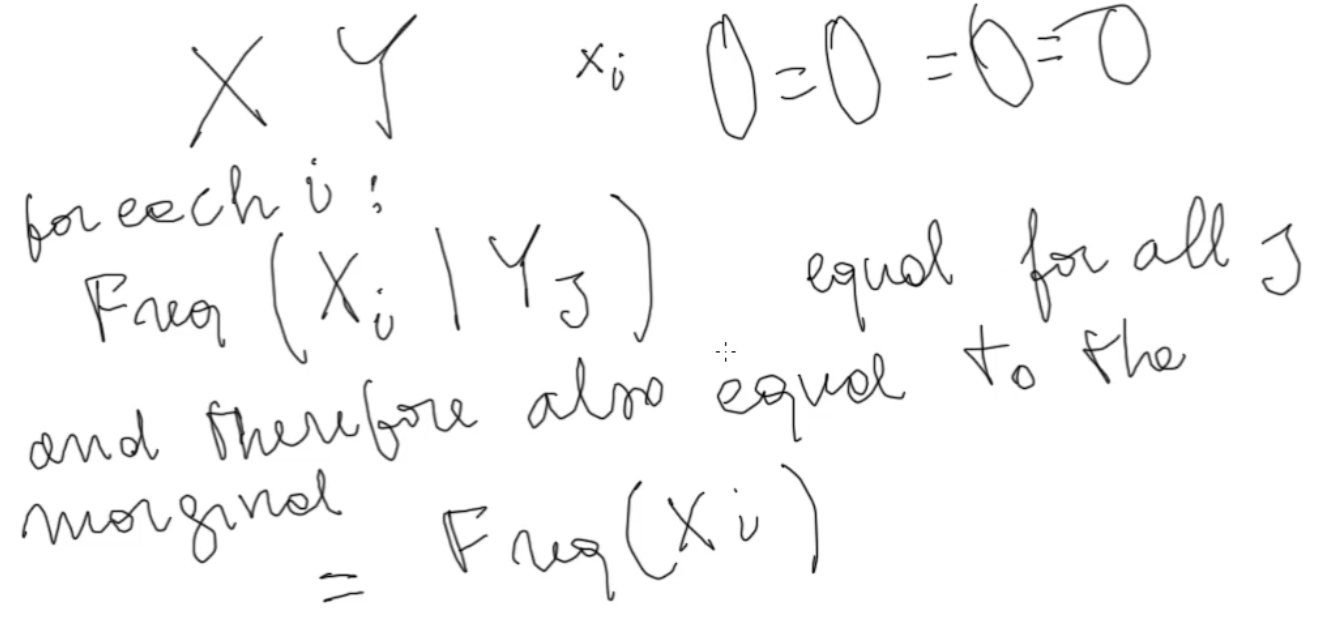 X Y xi 0 = 0 = 0 = 0
for each i:
Freq (Xi | YJ) equal for all J
and therefore also equal to the
marginal
= Freq (Xi)